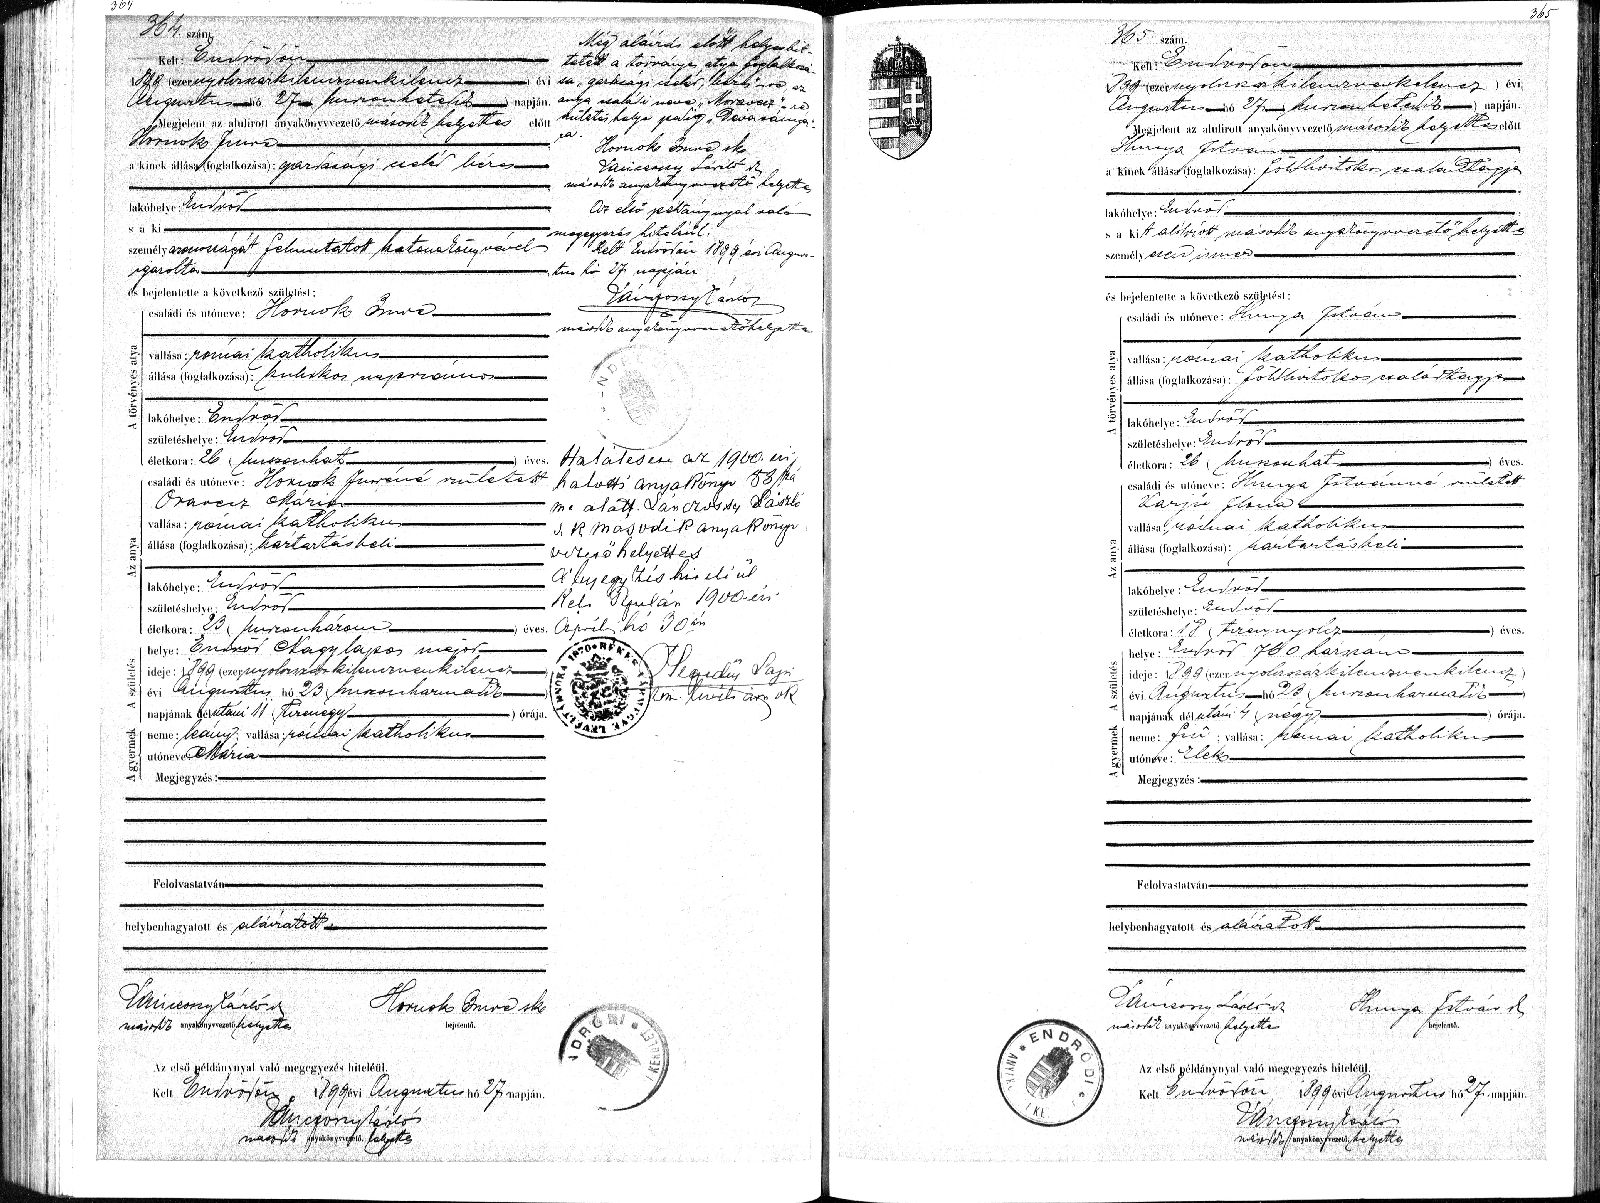 364
364. szám.
Kelt: Endrődön
1899 (ezernyolcszázkilencvenkilencz) évi
Augusztus hó 27 (huszonhetedik) napján.
Megjelent az alulírott anyakönyvvezető második helyettes előtt
Hornok Imre
a kinek állása (foglalkozása): gazdasági cseléd béres
lakóhelye: Endrőd
s a ki
személyazonosságát felmutatott katonakönyvével
igazolta
és bejelentette a következő születést:
A törvényes atya
családi és utóneve: Hornok Imre
vallása: római katholikus
állása (foglalkozása): kubikos napszámos
lakóhelye: Endrőd
születéshelye: Endrőd
életkora: 26 (huszonhat) éves.
Az anya
családi és utóneve: Hornok Imréné született
Oravecz Mária
vallása: római katholikus
állása (foglalkozása): háztartásbeli
lakóhelye: Endrőd
születéshelye: Endrőd
életkora: 23 (huszonhárom) éves.
A születés
helye: Endrőd Nagylapos major
ideje: 1899 (ezernyolcszázkilencvenkilencz
évi Augusztus hó 23 (huszonharmadik)
napjának délutáni 11 (tizenegy) órája.
A gyermek
neme: leány; vallása: római katholikus
utóneve: Mária
Megjegyzés:
Felolvastatván
helybenhagyatott és aláíratott
Hornok Imre sk
második anyakönyvvezető helyettes
bejelentő.
Az első példánynyal való megegyezés hiteléül.
Kelt Endrődön, 1899 évi Augusztus hó 27 napján.
második anyakönyvvezető helyettes
Még aláírás előtt helyesbít-
tetett a törvényes atya foglalkozá-
sa „gazdasági cseléd, béres"-re az
anya családi neve „Moravecz"-re
születés helye pedig „Dévaványá-
ra.
Hornok Imre sk
második anyakönyvvezető helyettes
Az első példánynyal való
megegyezés hiteléül.
Kelt Endrődön 1899 évi Augusz-
tus hó 27 napján
második anyakönyvvezető helyettes
Halálesete az 1900. évi
halotti anyakönyv 53
László
s. k. második anyakönyv
vezető helyettes
A bejegyzés hiteléül
Kelt Gyulán 1900 évi
Április hó 30 án
365
365. szám.
Kelt: Endrődön
1899 (ezernyolcszázkilencvenkilencz) évi
Augusztus hó 27 (huszonhetedik) napján.
Megjelent az alulírott anyakönyvvezető második helyettes előtt
Hunya István
a kinek állása (foglalkozása): földbirtokos családtagja
lakóhelye: Endrőd
s a kit alólírott második anyakönyvvezető helyettes
személyesen ismer
és bejelentette a következő születést:
A törvényes atya
családi és utóneve: Hunya István
vallása: római katholikus
állása (foglalkozása): földbirtokos családtagja
lakóhelye: Endrőd
születéshelye: Endrőd
életkora: 26 (huszonhat) éves.
Az anya
családi és utóneve: Hunya Istvánné született
Varjú Ilona
vallása: római katholikus
állása (foglalkozása): háztartásbeli
lakóhelye: Endrőd
születéshelye: Endrőd
életkora: 18 (tizennyolcz) éves.
A születés
helye: Endrőd 760 házszám
ideje: 1899 (ezernyolcszázkilencvenkilencz)
évi Augusztus hó 23 (huszonharmadik)
napjának délutáni 4 (négy) órája.
A gyermek
neme: fiú; vallása: római katholikus
utóneve: Elek
Megjegyzés:
Felolvastatván
helybenhagyatott és aláíratott
Hunya István sk
második anyakönyvvezető helyettes
bejelentő.
Az első példánynyal való megegyezés hiteléül.
Kelt Endrődön, 1899 évi Augusztus hó 27 napján.
második anyakönyvvezető helyettes
ENDRŐDI